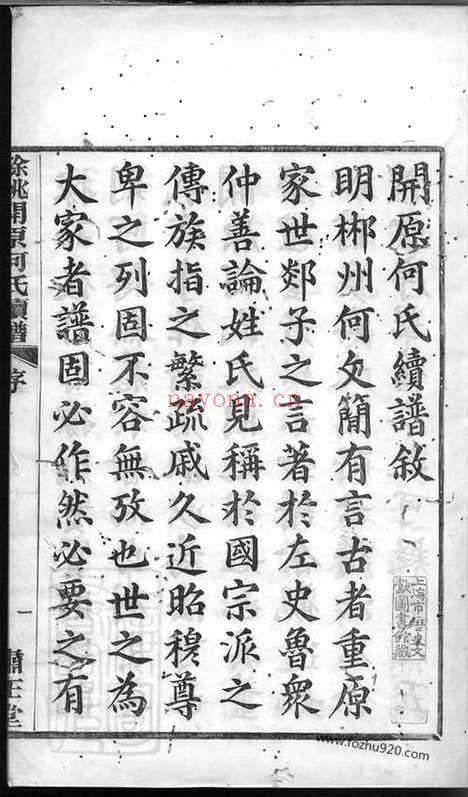 開原何氏續譜敘
明郴州何文簡有言古者重原
家世郯子之言著於左史魯眾
仲善論姓氏見稱於國宗派之
傳族指之繁疏戚久近昭穆尊
卑之列固不容無攷也世之為
大家者譜固必作然必要之有
餘姚開原何氏續譜
序
一
上海市歷史文
獻圖書館藏
nayona.cn
www.fozhu920.com